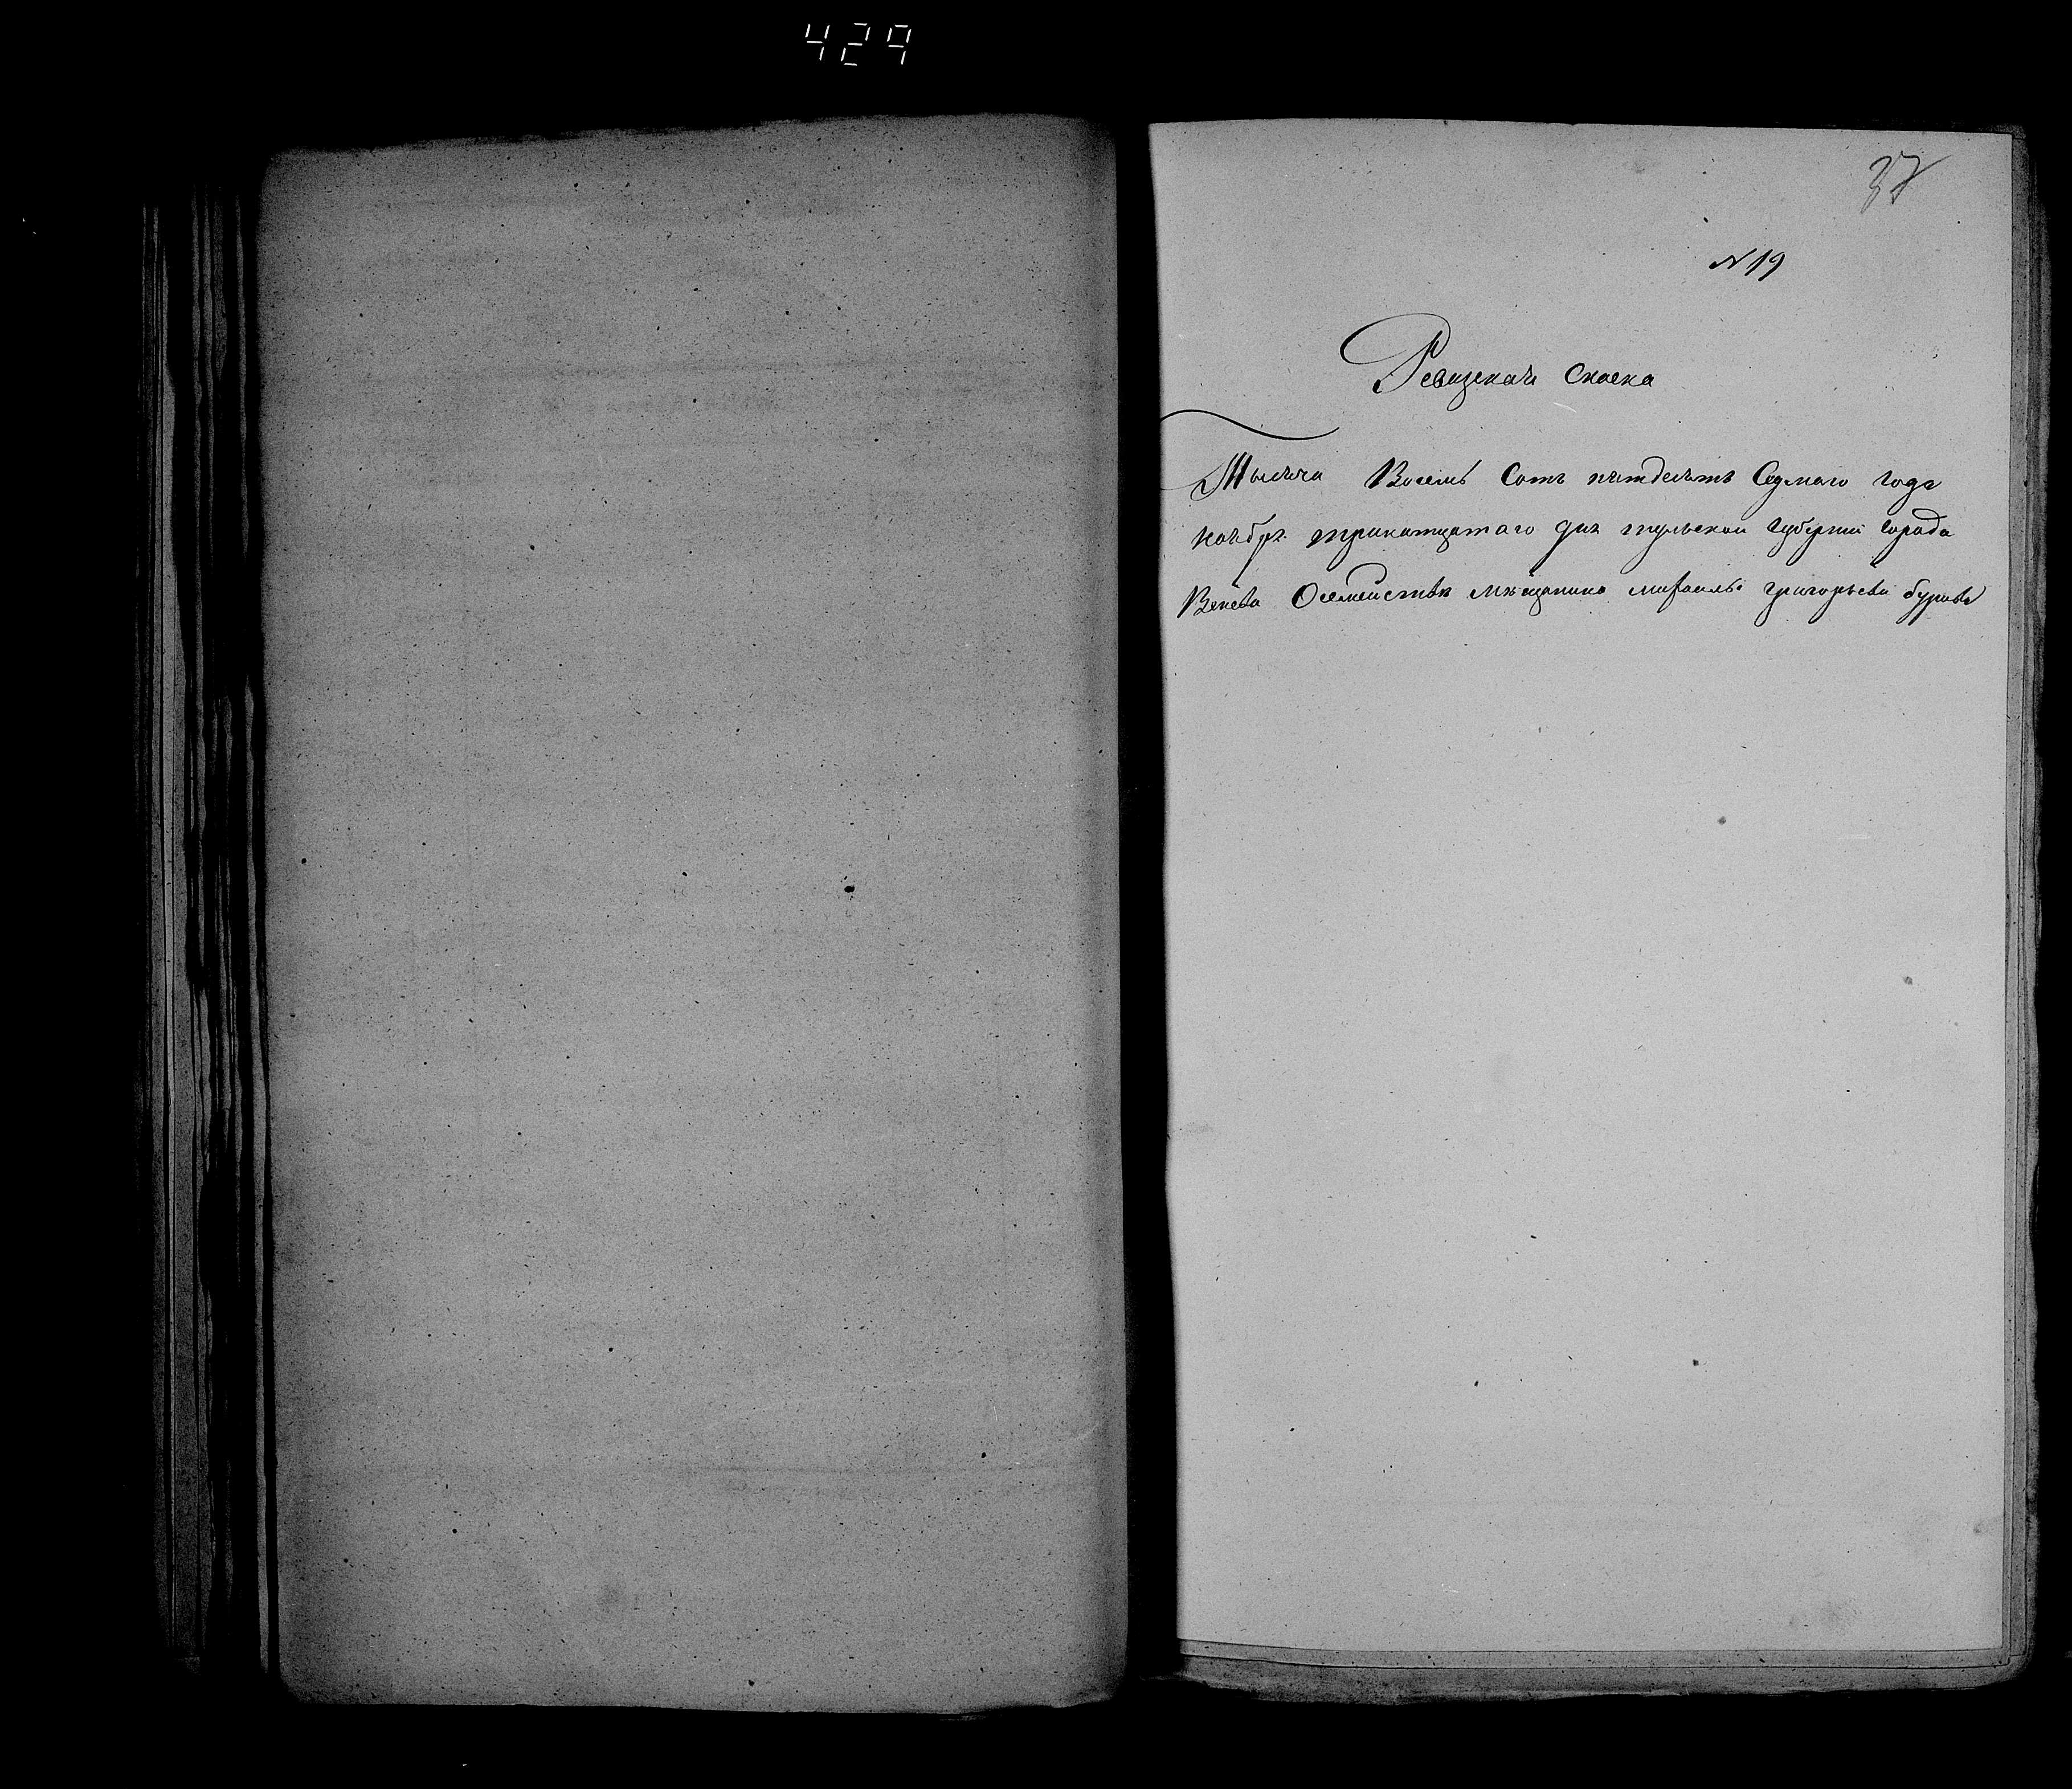 429
37
N 19
Ревизская Скаска
Тысяча Восемь Сотъ пятдесятъ Седмаго года
ноября трикатцатаго дня тульской губернии города
Венева Осемействѣ мѣщанина михаила григорьева бурова